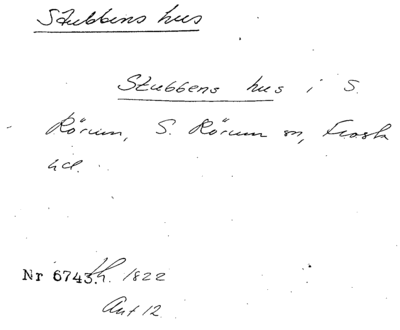 Stubbens hus
Stubbens hus i S.
Rörum, S. Rörum sn, Frosta
hd.
Nr 6743. h. 1822
Ant 12